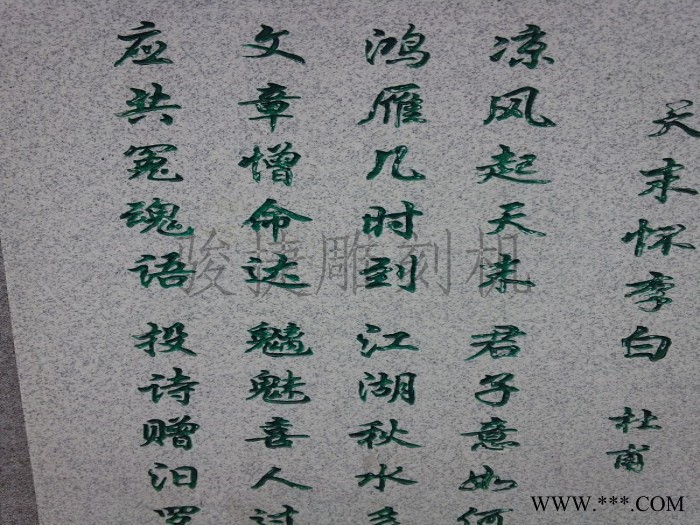 天末怀李白 杜甫
凉风起天末 君子意如何
鸿雁几时到 江湖秋水多
文章憎命达 魑魅喜人过
应共冤魂语 投诗赠汨罗
骏捷雕刻机
WWW.***.COM